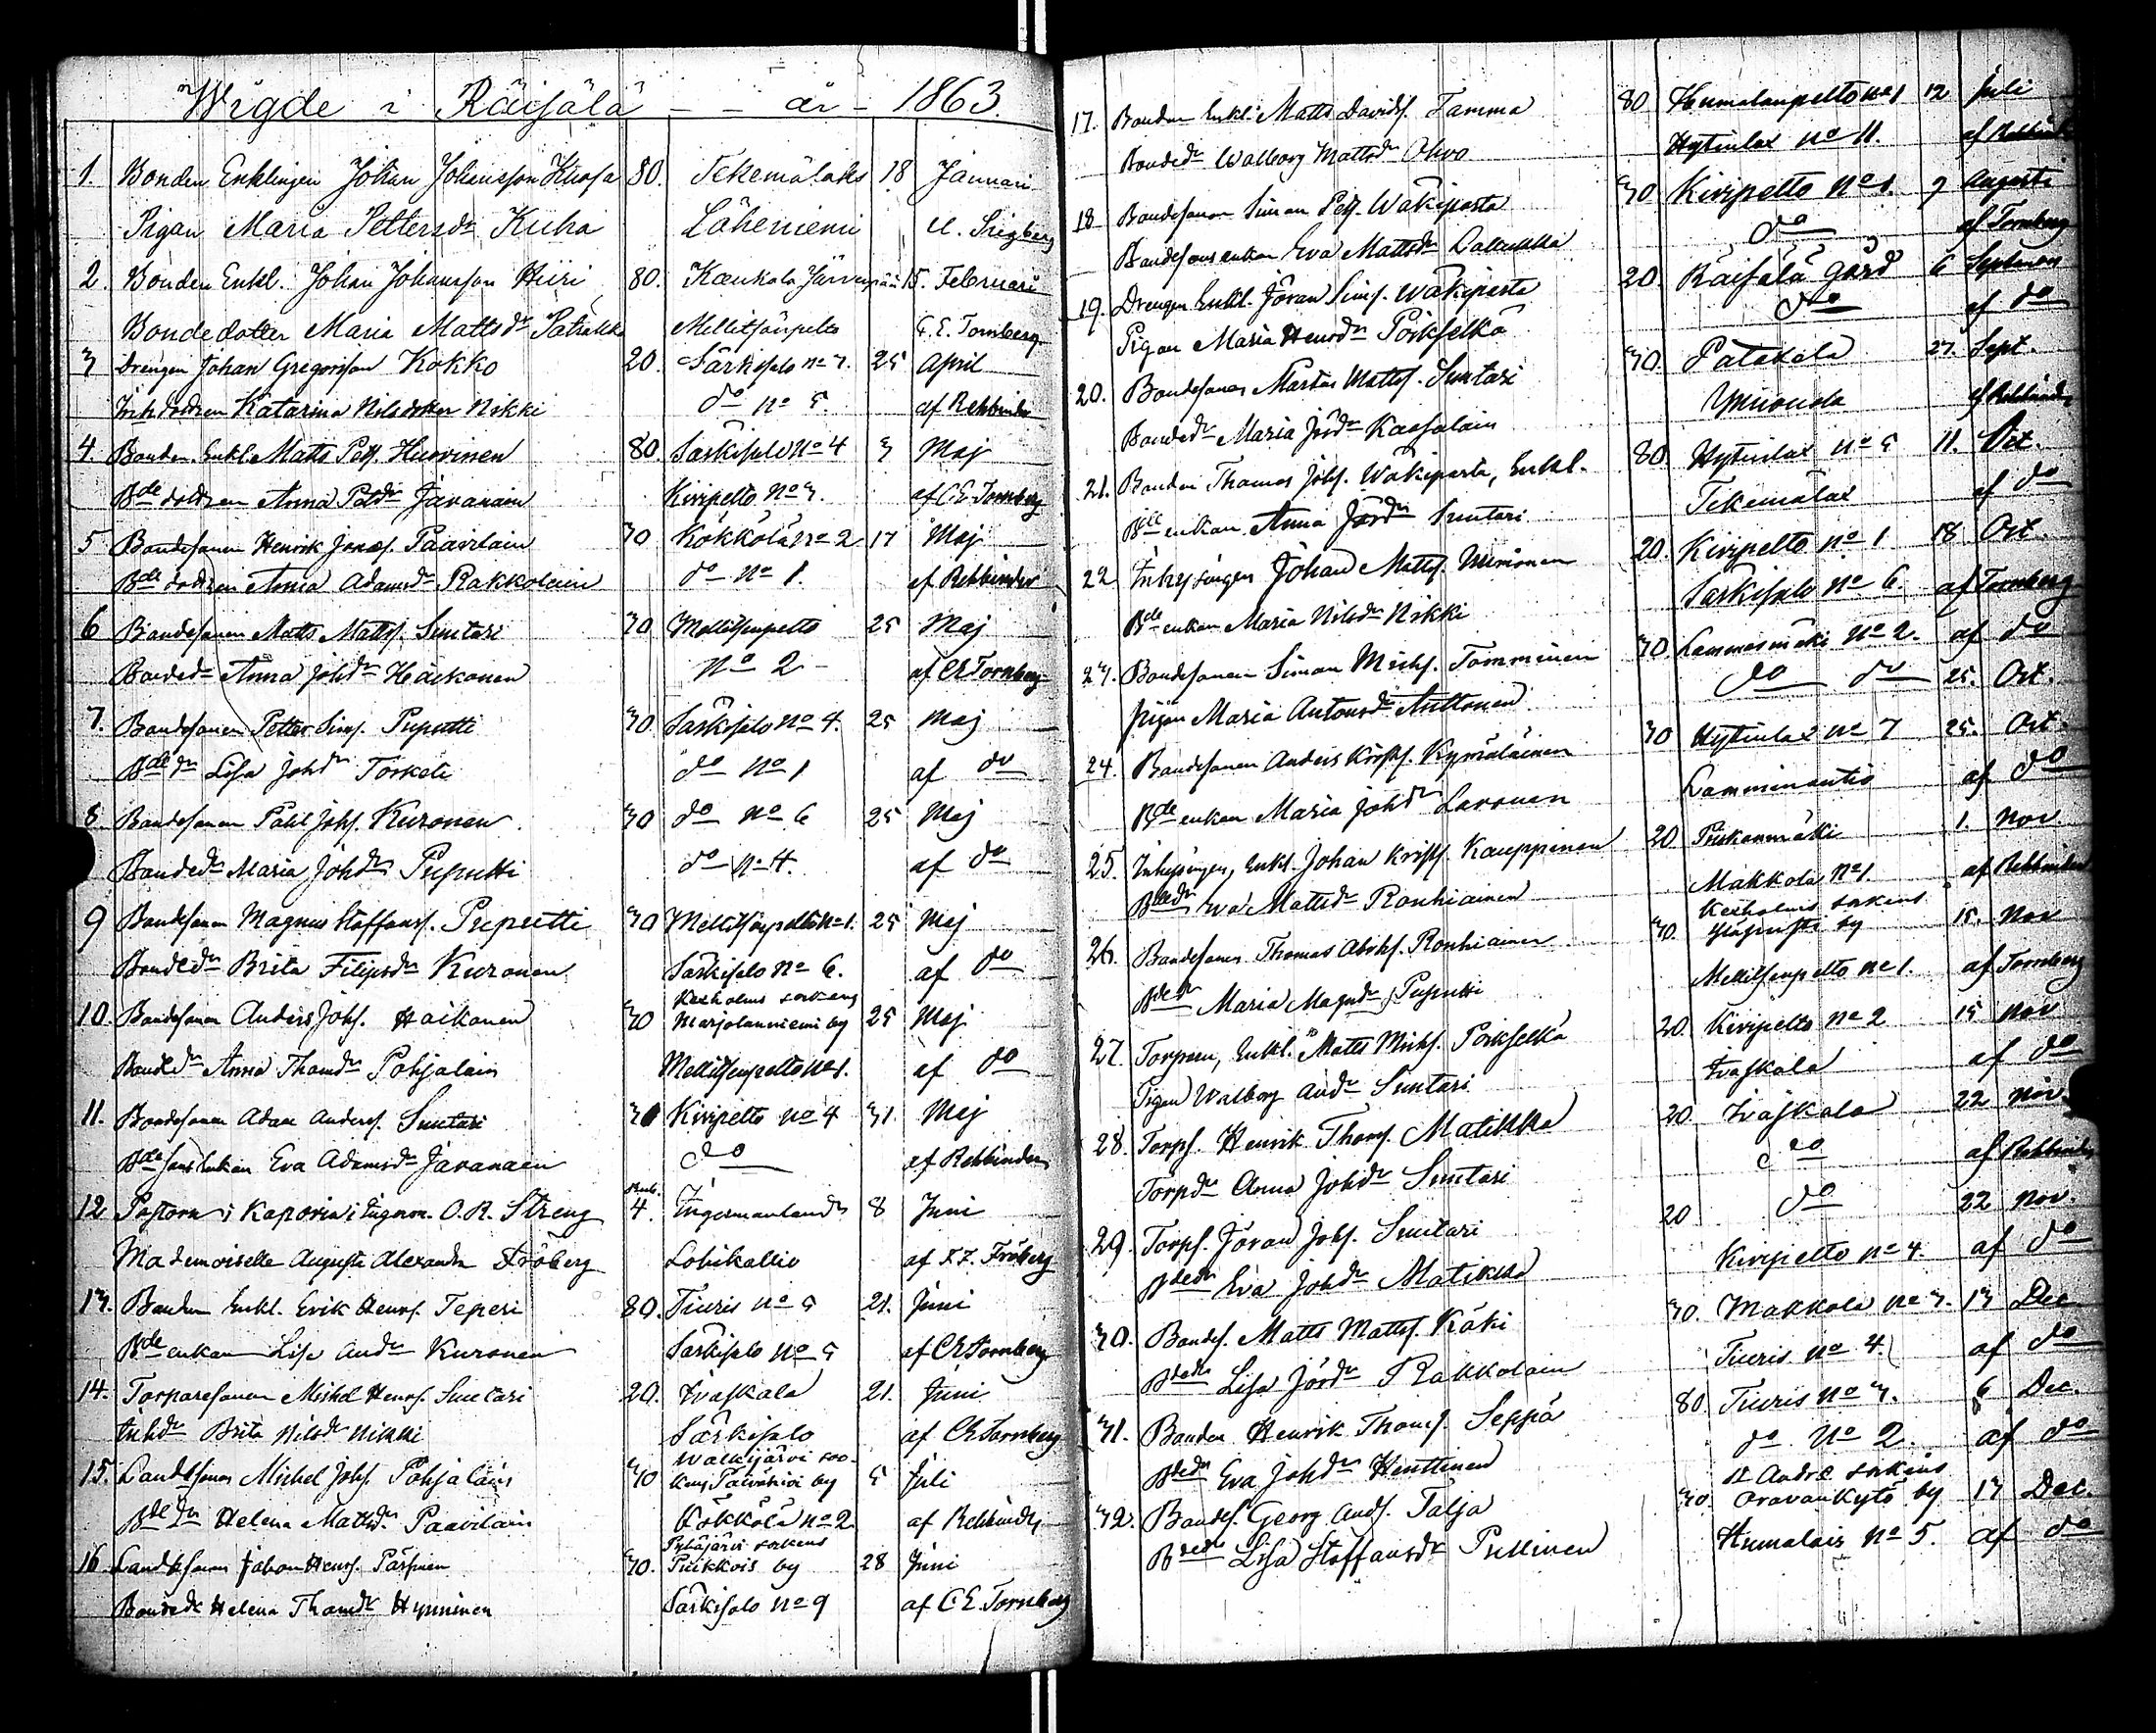 Wigde i Räisälä - - år - 1863.
1. Bonden Enklingen Johan Johansson Kuosa 80. Tekemälaks 18 Januari
Pigan Maria Pettersdr Kuha Läheniemi
2. Bonden Enkl. Johan Johansson Hiiri 80. Kaukola Järvenpää 15. Februari
Bondedotter Maria Mattsdr Patrikka Mellitsänpelto C.E. Tornberg
3 Drengen Johan Gregorisson Kokko 20. Särkisalo No 7. 25 April
Inh dottren Katarina Nilsdotter Nikki do No 5. af Rehbinder
4. Bonden Enkl. Matts Pett. Hurvinen 80. Särkisalo No 4 3 Maj
Bde dottren Anna Petdr Javanain Kivipelto No 3. af C E Tornberg
5 Bondesonen Henrik Jonas. Paavilain 30 Kökkölä No 2 17 Maj
Bde dottren Anna Adamsdr Rakkolain do No 1. af Rehbinder
6 Bondesonen Matts Matts. Suntari 30 Mellitsenpelto 25 Maj
Bondedr Anna Johdr Häikonen No 2 - af CE Tornberg
7. Bondesonen Petter Sims. Puputti 30 Särkisalo No 4. 25 Maj
Bde dr Lisa Johdr Torkeli do No 1 af do
8. Bondesonen Pahl Johs. Kuronen 30 do No 6 25 Maj
Bondedr Maria Johdr Puputti do No 4. af do
9 Bondesonen Magnus Staffans. Puputti 30 Mellitsenpelto No 1. 25 Maj
Bondedr Brita Filipsdr Kuronen Särkisalo No 6. af do
10. Bondesonen Anders Johs. Haikonen 30 Kexholms sockens Marjolanniemi by 25 Maj
Bondedr Anna Thomdr Pohjalain Mellitsenpelto No 1. af do
11. Bondesonen Adam Anders. Suntari 30 Kivipelto No 4 31. Maj
Bde sons enkan Eva Adamsdr Javanain do af Rehbinder
12 Pastorn i Kaporia i Ingerm. O. R. Streng Rub. 4. Ingermanland 8 Juni
Mademoiselle Augusta Alexandra Fröberg Lohikallio af F. F. Fröberg
13. Bonden Enkl. Erik Henrs. Teperi 80. Tiuris No 5 21. Juni
Bde enkan Lisa Andr Kuronen Särkisalo No 5 af CE Tornberg
14. Torparesonen Michel Henrs. Suntari 20. Ivaskala 21. Juni
Inhdr Brita Nilsdr Nikki Särkisalo af CE Tornberg
15. Landbsonen Michel Johs. Pohjalain 30 Walkijärvi soc- kens Päiväkivi by 5 Juli
Bde dr Helena Mattsdr Paavilain Kökkölä No 2 af Rehbinder
16 Landbsonen Johan Henrs. Pärsinen 30. Pyhäjärvi sockens Puikkois by 28 Juni
Bondedr Helena Thomdr Hynninen Särkisalo No 9 af C E. Tornberg
17. Bonden Enkl. Matts Davids. Tamma 80 Humalanpelto No 1 12 Juli
Bondedr Walborg Mattsdr Ohvo Hytinlax No 11. af Rehbinder
18 Bondesonen Simon Pett. Wäkiparta 30 Kivipelto No 1. 9 Augusti
Bondesonsenkan Eva Mattsdr Lallukka do af Tornberg
19. Drengen Enkl. Jöran Sims. Wäkiparta 20. Räisälä gård 6 September
Pigan Maria Henrdr Poikselkä do af do
20. Bondesonen Mårten Matts. Suntari 30. Patakala 27. Sept.
Bondedr Maria Jördr Kaasalain Unnunkola af Rehbinder
21. Bonden Thomas Johs. Wäkiparta, Enkl. 80. Hytinlax No 5 11. Oct.
Bde enkan Anna Jördr Suntari Tekemälax af do
22 Inhysingen Johan Matts. Mimonen 20. Kivipelto No 1 18. Oct.
Bde enkan Maria Nilsdr Nikki Särkisalo No 6. af Tornberg
23. Bondesonen Simon Michs. Tomminen 30. Lammasmäki No 2. af do
Pigan Maria Antonsdr Anttonen do do 25. Oct.
24. Bondesonen Anders Kristfs. Kymäläinen 30 Hytinlax No 7 25. Oct.
Bde enkan Maria Johdr Lavonen Lamminautio af do
25. Inhysingen, Enkl. Johan Kristfs. Kauppinen 20 Piiskanmäki 1. Nov.
Bdedr Eva Mattsdr Ronkiainen Makkola No 1. af Rehbinder
26. Bondesonen Thomas Abrahs. Ronkiainen 30. Kexholms sockens by 15. Nov
Bdedr Maria Magndr Puputti Mellitsenpelto No 1. af Tornberg
27. Torparen, Enkl. Matts Michs. Poikselkä 20. Kivipelto No 2 15 Nov
Pigan Walborg Andr Suntari Ivaskala af do
28. Torps. Henrik Thoms. Matikka 20 Ivaskala 22 Nov.
Torpdr Anna Johdr Suntari do af Rehbinder
29. Torps. Jöran Johs. Suntari 20 do 22 Nov.
Bdedr Eva Johdr Matikka Kivipelto No 4. af do
30. Bondes. Matts Matts. Käki 30. Makkola No 3. 13 Dec.
Bdedr Lisa Jördr Rakkolain Tiuris No 4. af do
31. Bonden Henrik Thoms. Seppä 80. Tiuris No 3. 6 Dec.
Bdedr Eva Johdr Henttinen do No 2. af do
32. Bondes. Georg Ands. Talja 30. St Andræ sockens Oravankytö by 13 Dec.
Bdedr Lisa Staffansdr Pullinen Humalais No 5. af do